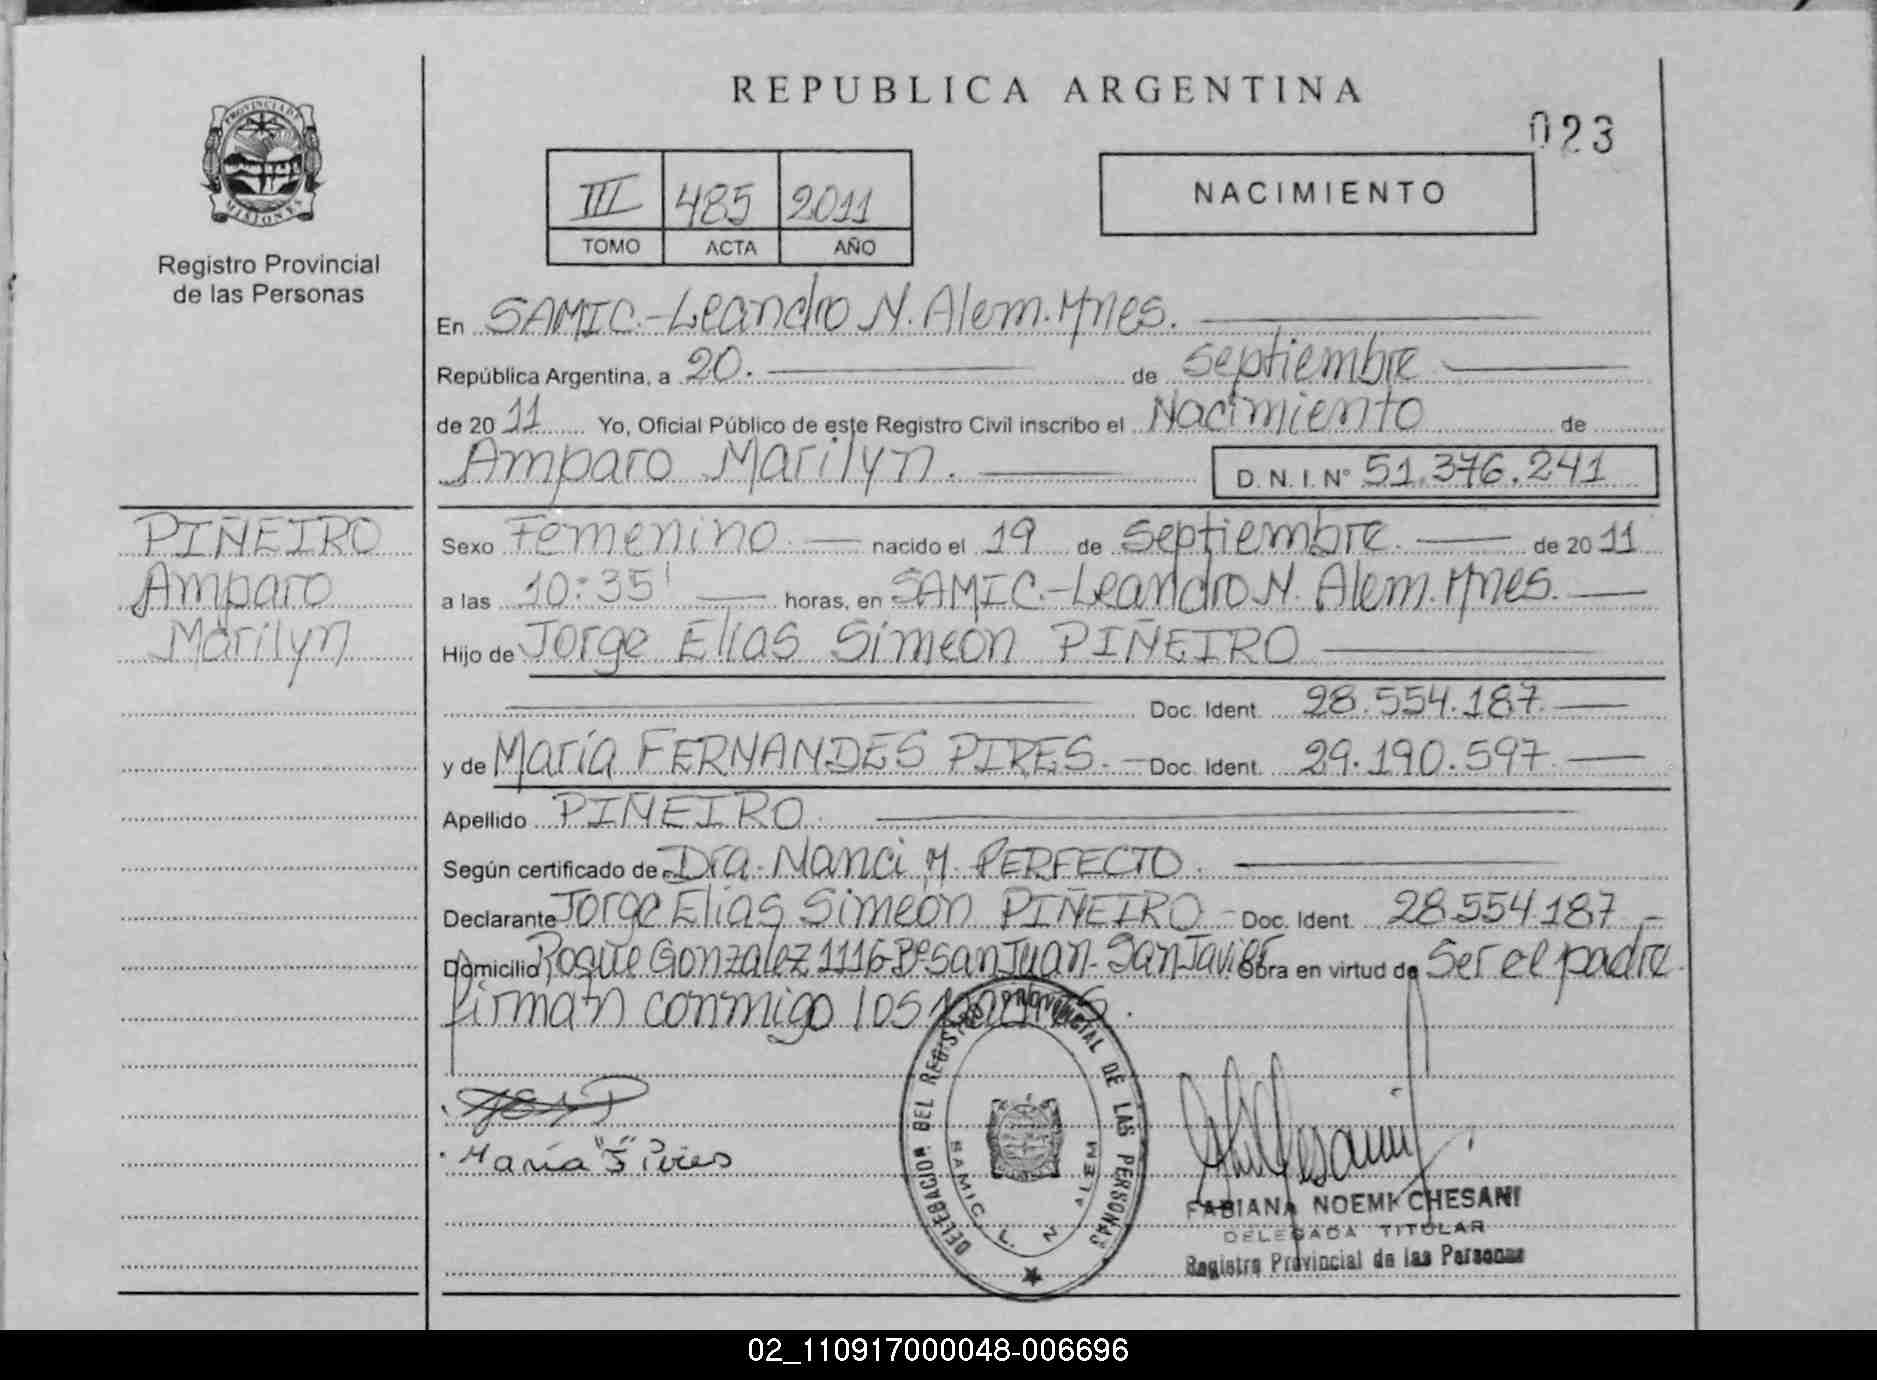 REPUBLICA ARGENTINA
023
PROVINCIA DE MISIONES
Registro Provincial
de las Personas
III 485 2011
TOMO ACTA AÑO
NACIMIENTO
En SAMIC.-Leandro N. Alem. Mnes.
República Argentina, a 20. de Septiembre
de 2011 Yo, Oficial Público de este Registro Civil inscribo el Nacimiento de
Amparo Marilyn. D.N.I. Nº 51.376.241
PIÑEIRO
Amparo
Marilyn
Sexo Femenino. nacido el 19 de Septiembre. de 2011
a las 10:35' horas, en SAMIC.-Leandro N. Alem. Mnes.
Hijo de Jorge Elias Simeón PIÑEIRO
Doc. Ident. 28.554.187.
y de María FERNANDES PIRES. Doc. Ident. 29.190.597
Apellido PIÑEIRO.
Según certificado de Dra. Nanci M. PERFECTO.
Declarante Jorge Elias Simeón PIÑEIRO - Doc. Ident. 28.554.187 -
Domicilio Roque Gonzalez 1116-Bº San Juan- San Javier Obra en virtud de Ser el padre
firman conmigo los padres.
María "F" Pires
DELEGACION DEL REGISTRO PROVINCIAL DE LAS PERSONAS
SAMIC L. N. ALEM
FABIANA NOEMI CHESANI
DELEGADA TITULAR
Registro Provincial de las Personas
02_110917000048-006696